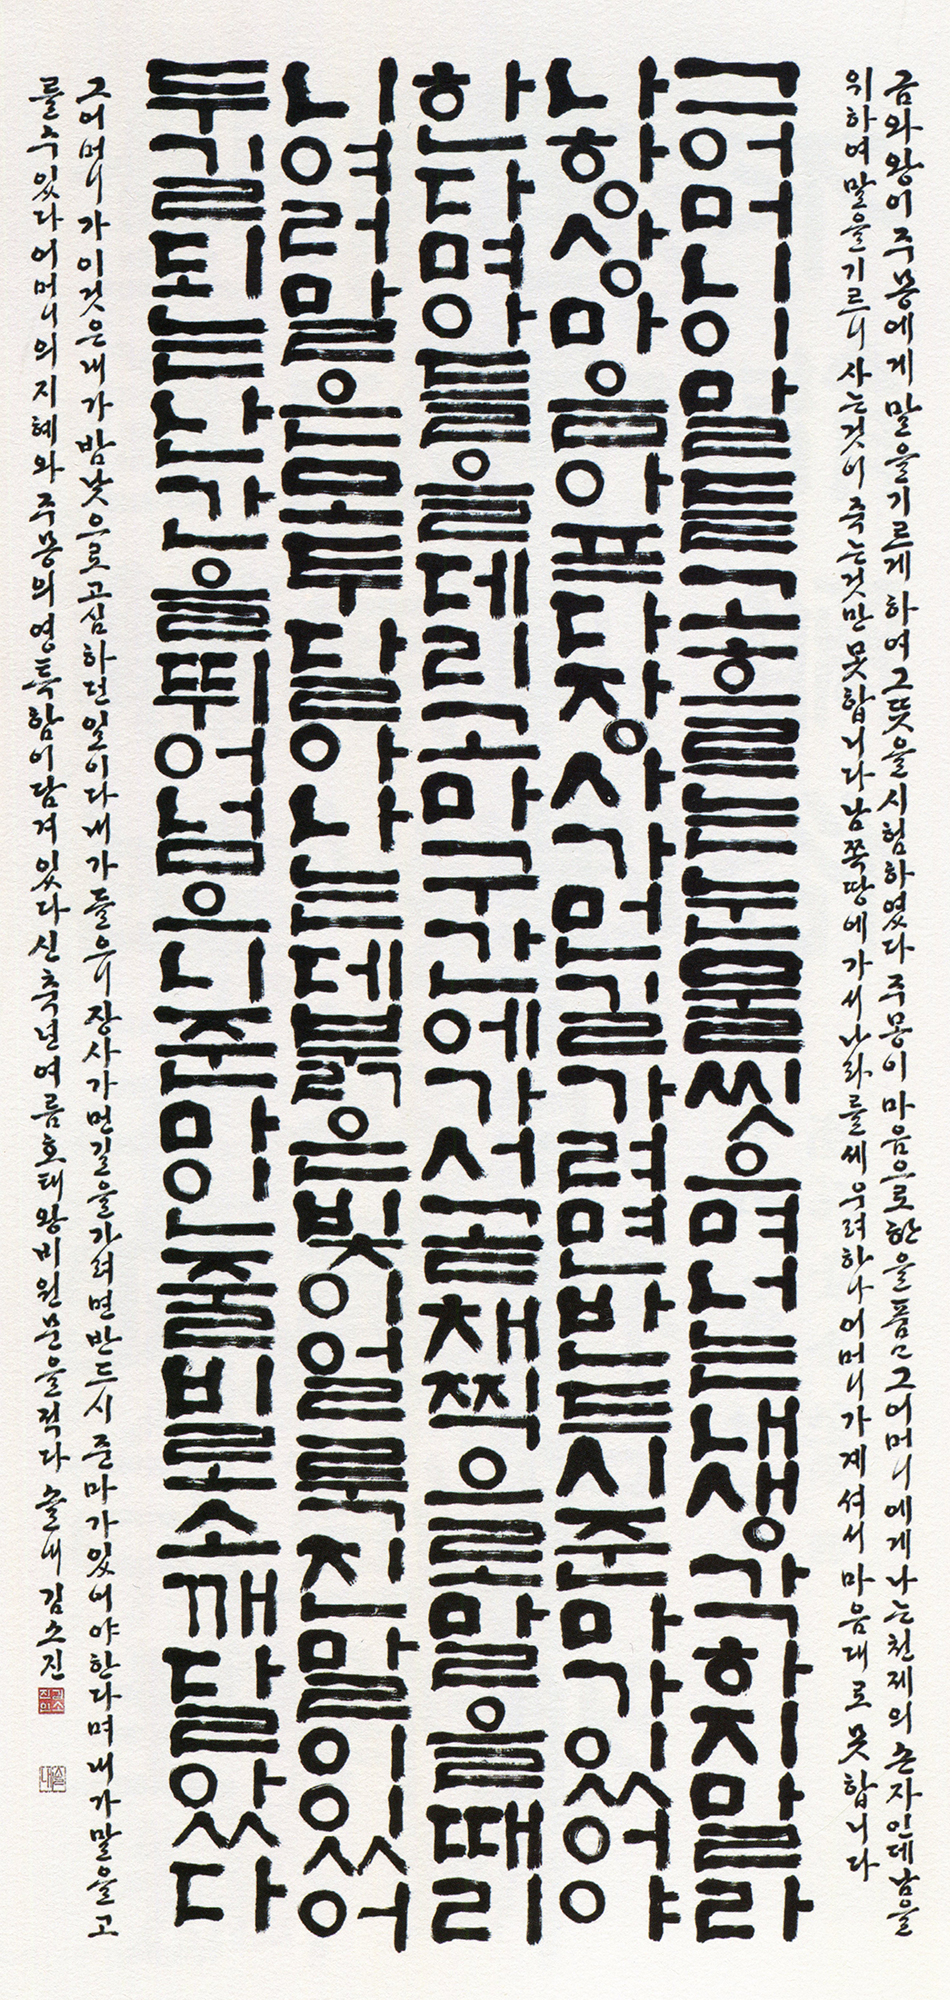 금와왕이주몽에게말을기르게하여그뜻을시험하였다주몽이마음으로한을품고그어머니에게나는천제의손자인데남을
위하여말을기르니사는것이죽는것만못합니다남쪽땅에가서나라를세우려하나어머니가계셔서마음대로못합니다
그어머니이말듣고흐르는눈물씻으며너는내생각하지말라
나항상마음아프다장사가먼길가려면반드시준마가있어야
한다며아들을데리고마구간에가서곧채찍으로말을때리
니여러말은모두달아나는데붉은빛이얼룩진말있어
두길되는난간을뛰어넘으니준마인줄비로소깨달았다
그어머니가이것은내가밤낮으로고심하던일이다내가들으니장사가먼길을가려면반드시준마가있어야한다며내가말을고
를수있다어머니의지혜와주몽의영특함이담겨있다신축년여름호태왕비원문을적다솔내김소진